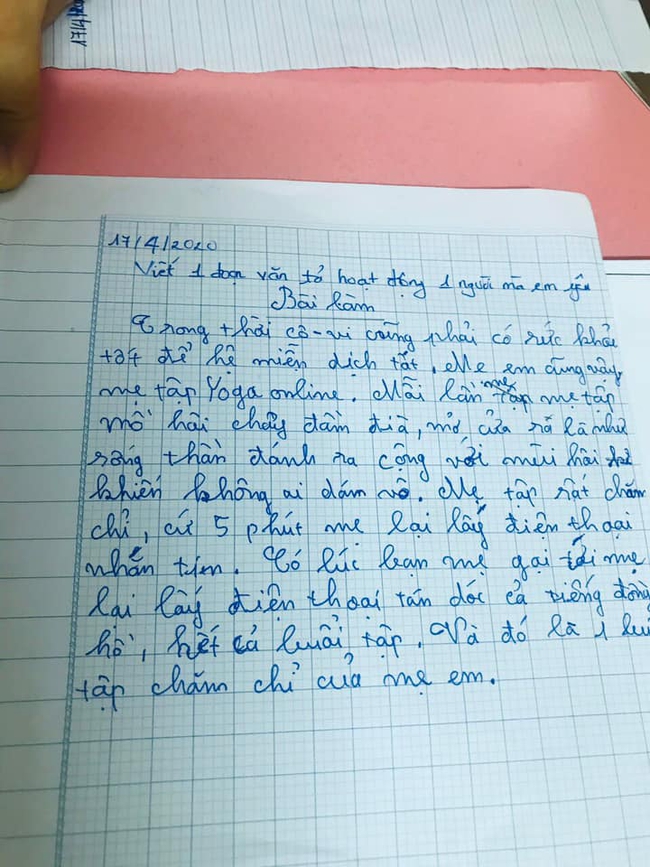 17/4
17/4/2020
Viết 1 đoạn văn tả hoạt động 1 người mà em yêu
Bài làm
Trong thời cô-vi cũng phải có sức khỏe
tốt để hệ miễn dịch tốt. Mẹ em cũng vậy,
mẹ tập Yoga online. Mỗi lần mẹ tập
mồ hôi chảy đầm đìa, mở cửa ra là như
sóng thần đánh ra cộng với mùi hôi
khiến không ai dám vô. Mẹ tập rất chăm
chỉ, cứ 5 phút mẹ lại lấy điện thoại
nhắn tin. Có lúc bạn mẹ gọi tới mẹ
lại lấy điện thoại tán dóc cả tiếng đồng
hồ, hết cả buổi tập. Và đó là 1
tập chăm chỉ của mẹ em.